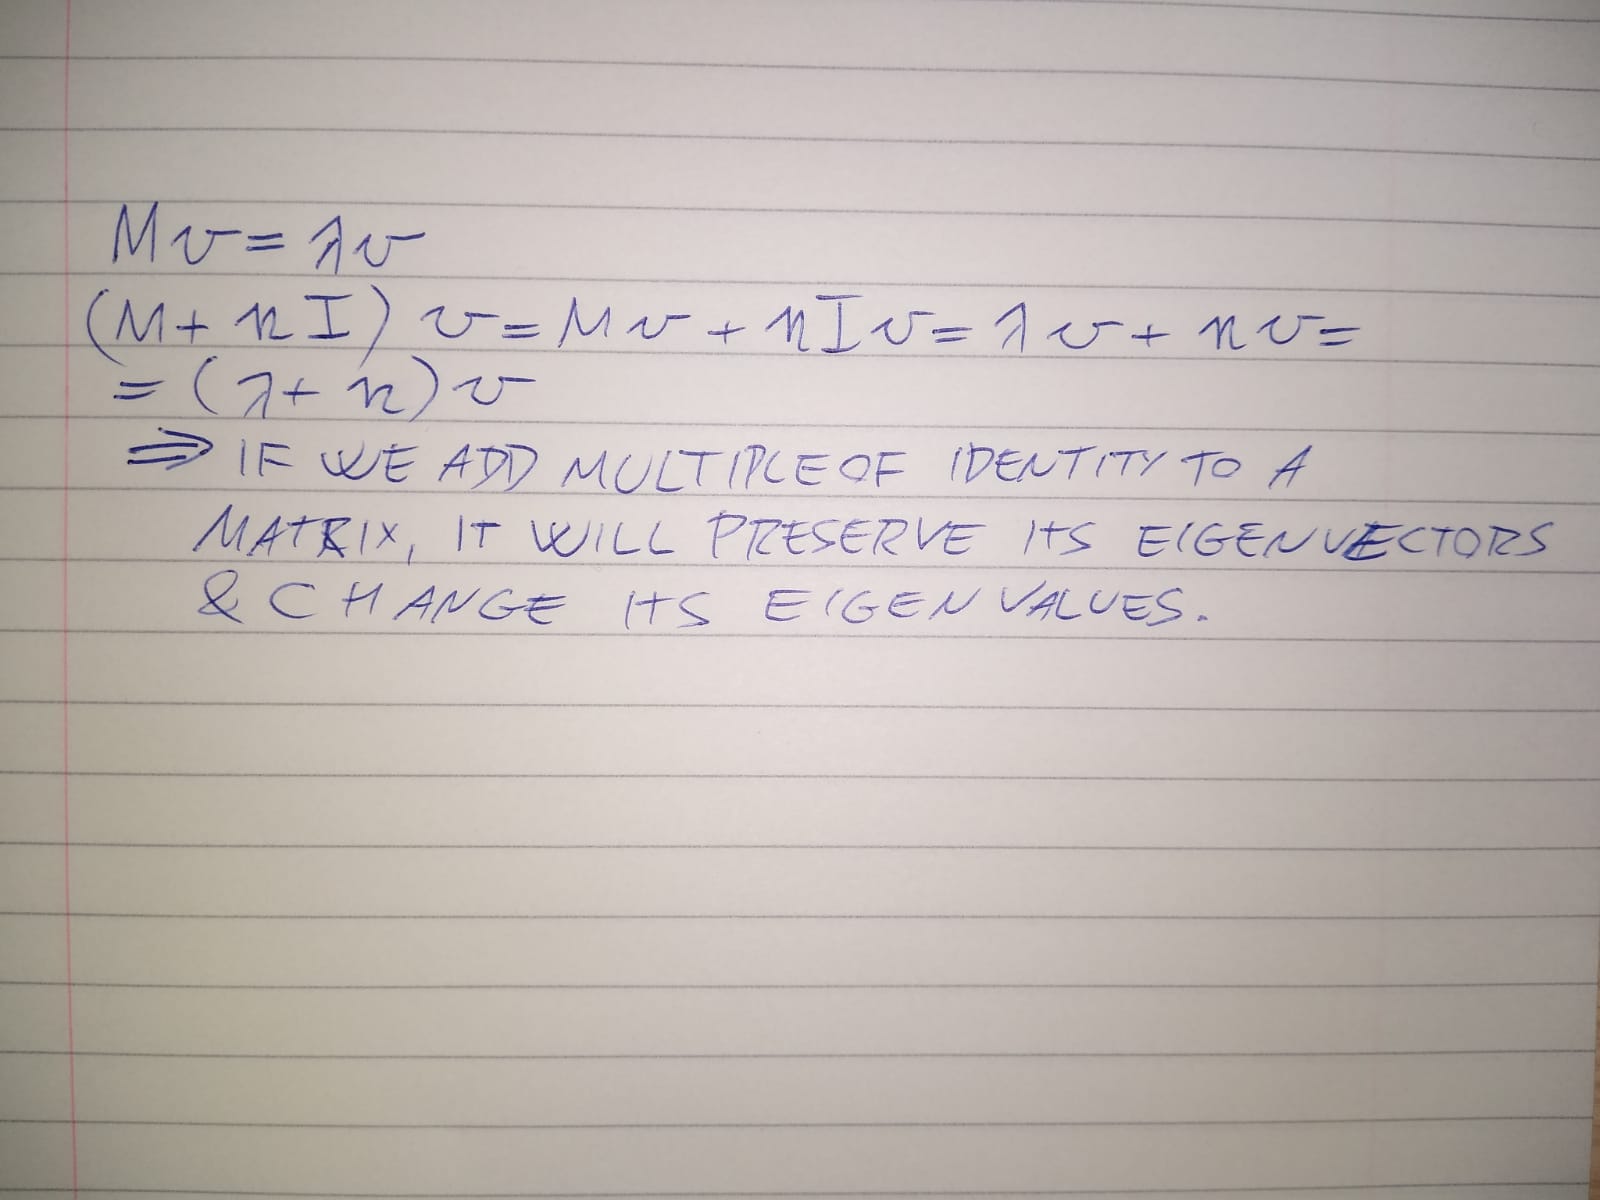 Mv = λv
(M + nI) v = Mv + nIv = λv + nv =
= (λ + n)v
⇒ IF WE ADD MULTIPLE OF IDENTITY TO A
MATRIX, IT WILL PRESERVE ITS EIGENVECTORS
& CHANGE ITS EIGENVALUES.